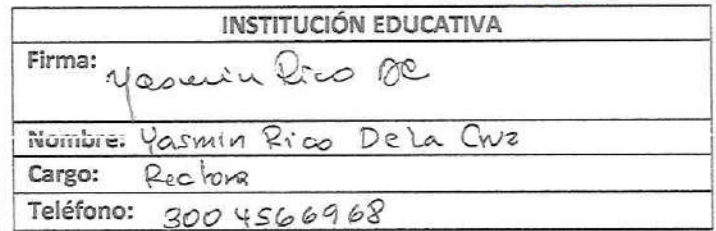 INSTITUCIÓN EDUCATIVA
Firma: Yasmin Rico DC
Nombre: Yasmin Rico De La Cruz
Cargo: Rectora
Teléfono: 300 4566968